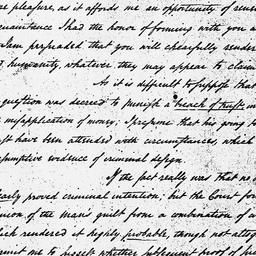 me pleasure, as it affords me an opportunity of
circumstance I had the honor of forming with you
I am persuaded that you will chearfully render
humanity, whatever they may appear to claim
As it is difficult to suppose that
question was decreed to punish a breach of trust
misapplication of money; I presume that his going
have been attended with circumstances, which
presumptive evidence of criminal design.
If the fact really was that no
clearly proved criminal intention; but the Court
of the man's guilt from a combination of
which rendered it highly probable, though not
permit me to myself whether sufficient proof of his